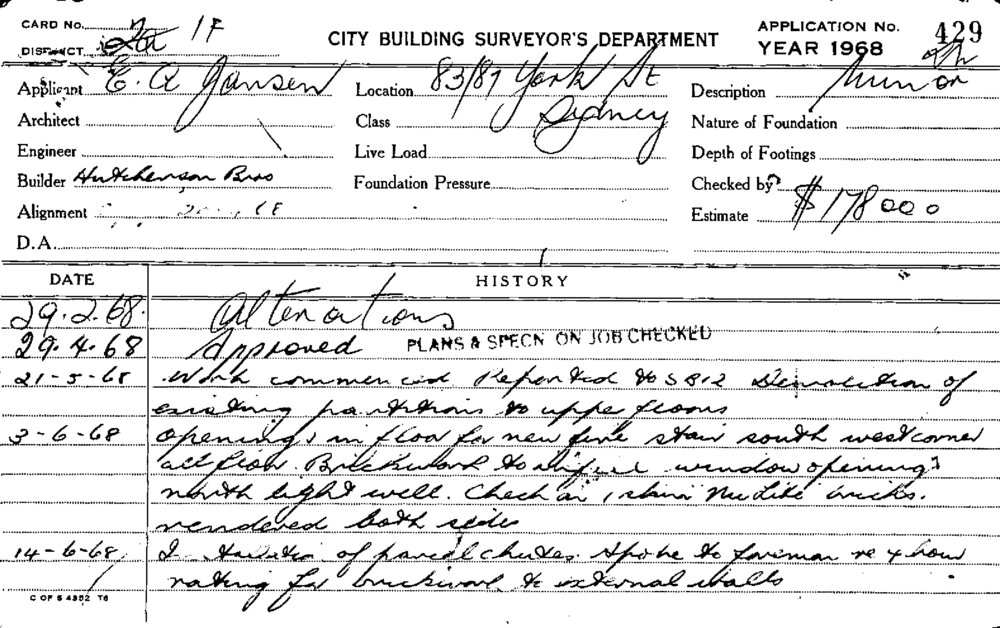 CARD No. 1F
DISTRICT
CITY BUILDING SURVEYOR'S DEPARTMENT
APPLICATION No. 429
YEAR 1968
Applicant E. A Jansen
Location 83/87 York St
Sydney
Description
Architect
Class
Nature of Foundation
Engineer
Live Load
Depth of Footings
Builder Hutcherson Bros
Foundation Pressure
Checked by
Alignment
Estimate $178000
D.A.
DATE HISTORY
29.2.68. Alterations
29.4.68 Approved PLANS & SPECN ON JOB CHECKED
21-5-68 Work commenced Reported to S812 Demolition of
existing partitions to upper floors
3-6-68 openings in floor for new fire stair south west corner
all floors. Brickwork to window openings
north light well. Check on 1 skin NuLite bricks.
rendered both sides
14-6-68 of parcel chutes. Spoke to foreman re 4 hour
rating for brickwork to external walls
C OF S 4352 T6